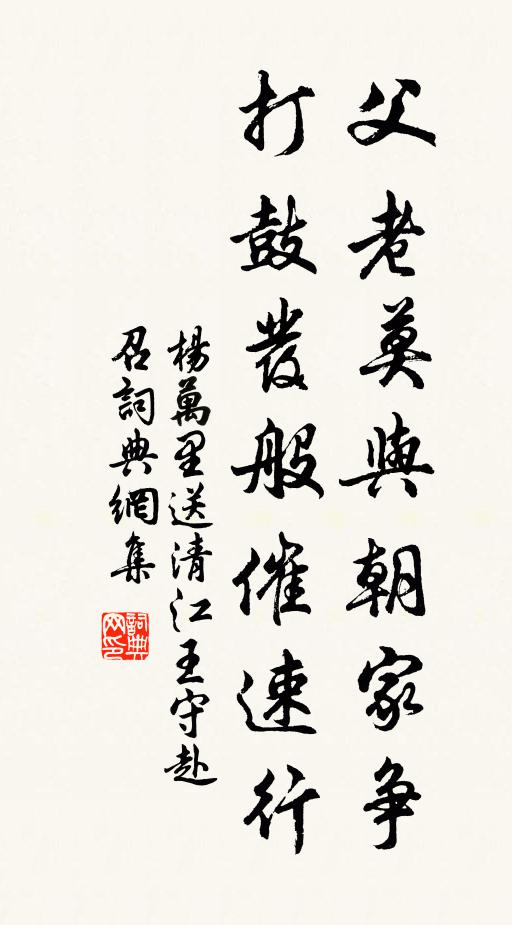 父老莫與朝家爭
打鼓發般催速行
楊萬里送清江王守赴
召詞典網集
詞典网印